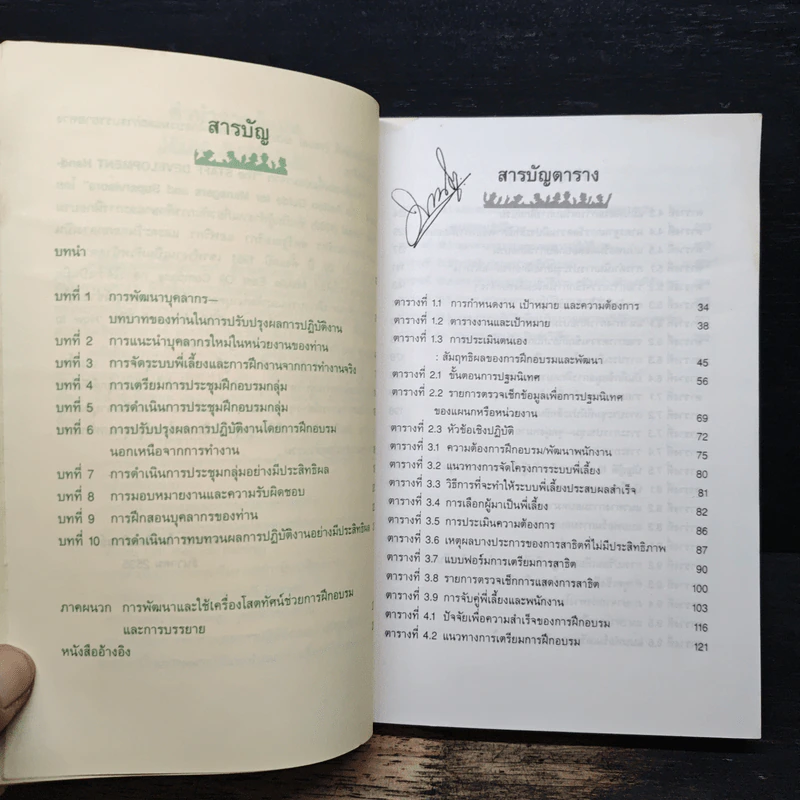 สารบัญ
บทนำ
บทที่ 1 การพัฒนาบุคลากร—
บทบาทของท่านในการปรับปรุงผลการปฏิบัติงาน
บทที่ 2 การแนะนำบุคลากรใหม่ในหน่วยงานของท่าน
บทที่ 3 การจัดระบบพี่เลี้ยงและการฝึกงานจากการทำงานจริง
บทที่ 4 การเตรียมการประชุมฝึกอบรมกลุ่ม
บทที่ 5 การดำเนินการประชุมฝึกอบรมกลุ่ม
บทที่ 6 การปรับปรุงผลการปฏิบัติงานโดยการฝึกอบรม
นอกเหนือจากการทำงาน
บทที่ 7 การดำเนินการประชุมกลุ่มอย่างมีประสิทธิผล
บทที่ 8 การมอบหมายงานและความรับผิดชอบ
บทที่ 9 การฝึกสอนบุคลากรของท่าน
บทที่ 10 การดำเนินการทบทวนผลการปฏิบัติงานอย่างมีประสิทธิผล
ภาคผนวก การพัฒนาและใช้เครื่องโสตทัศน์ช่วยการฝึกอบรม
และการบรรยาย
หนังสืออ้างอิง
สารบัญตาราง
ตารางที่ 1.1 การกำหนดงาน เป้าหมาย และความต้องการ 34
ตารางที่ 1.2 ตารางงานและเป้าหมาย 38
ตารางที่ 1.3 การประเมินตนเอง
: สัมฤทธิผลของการฝึกอบรมและพัฒนา 45
ตารางที่ 2.1 ขั้นตอนการปฐมนิเทศ 56
ตารางที่ 2.2 รายการตรวจเช็กข้อมูลเพื่อการปฐมนิเทศ
ของแผนกหรือหน่วยงาน 69
ตารางที่ 2.3 หัวข้อเชิงปฏิบัติ 72
ตารางที่ 3.1 ความต้องการฝึกอบรม/พัฒนาพนักงาน 75
ตารางที่ 3.2 แนวทางการจัดโครงการระบบพี่เลี้ยง 80
ตารางที่ 3.3 วิธีการที่จะทำให้ระบบพี่เลี้ยงประสบผลสำเร็จ 81
ตารางที่ 3.4 การเลือกผู้มาเป็นพี่เลี้ยง 82
ตารางที่ 3.5 การประเมินความต้องการ 86
ตารางที่ 3.6 เหตุผลบางประการของการสาธิตที่ไม่มีประสิทธิภาพ 87
ตารางที่ 3.7 แบบฟอร์มการเตรียมการสาธิต 90
ตารางที่ 3.8 รายการตรวจเช็กการแสดงการสาธิต 100
ตารางที่ 3.9 การจับคู่พี่เลี้ยงและพนักงาน 103
ตารางที่ 4.1 ปัจจัยเพื่อความสำเร็จของการฝึกอบรม 116
ตารางที่ 4.2 แนวทางการเตรียมการฝึกอบรม 121